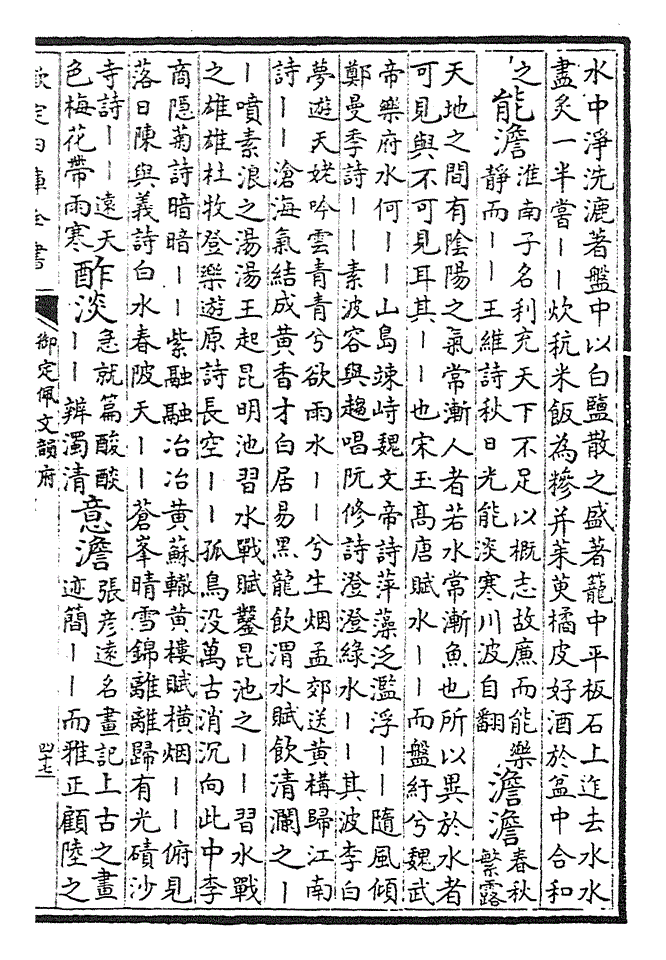 水中淨洗漉著盤中以白鹽散之盛著籠中平板石上迮去水水
盡炙一半嘗丨丨炊秔米飯為糝并茱萸橘皮好酒於盆中合和
之
能澹
淮南子名利充天下不足以概志故㢘而能樂
靜而丨丨王維詩秋日光能淡寒川波自翻
澹澹
春秋
繁露
天地之間有陰陽之氣常漸人者若水常漸魚也所以異於水者
可見與不可見耳其丨丨也宋玉髙唐賦水丨丨而盤紆兮魏武
帝樂府水何丨丨山島竦峙魏文帝詩萍藻泛濫浮丨丨隨風傾
鄭曼季詩丨丨素波容與趨唱阮修詩澄澄綠水丨丨其波李白
夢遊天姥吟雲青青兮欲雨水丨丨兮生烟孟郊送黄構歸江南
詩丨丨滄海氣結成黄香才白居易黑龍飲渭水賦飲清瀾之丨
丨噴素浪之湯湯王起昆明池習水戰賦鑿昆池之丨丨習水戰
之雄雄杜牧登樂遊原詩長空丨丨孤鳥没萬古消沉向此中李
商隠菊詩暗暗丨丨紫融融冶冶黄蘇轍黄樓賦横烟丨丨俯見
落日陳與義詩白水春陂天丨丨蒼峯晴雪錦離離歸有光磧沙
寺詩丨丨逺天
色梅花帶雨寒
酢淡
急就篇酸醶
丨丨辨濁清
意澹
張彦逺名畫記上古之畫
迹簡丨丨而雅正顧陸之
欽定四庫全書
御定佩文韻府
四十七